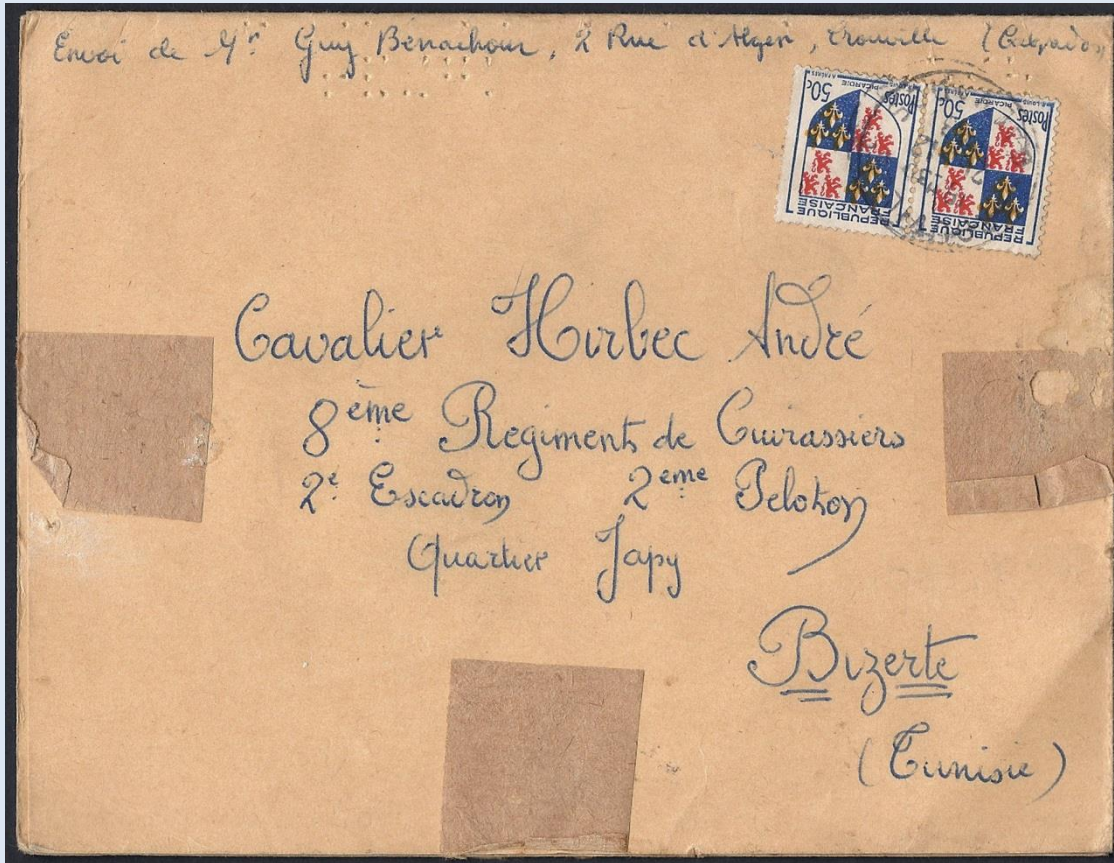 Envoi de Mr Guy Bénachour, 2 Rue d'Alger, Trouville (Calvados
50c Postes
PICARDIE
REPUBLIQUE
FRANÇAISE
50c Postes
PICARDIE
REPUBLIQUE
FRANÇAISE
Cavalier Hirbec André
8ème Regiment de Cuirassiers
2e Escadron 2eme Peloton
Quartier Japy
Bizerte
(Tunisie)